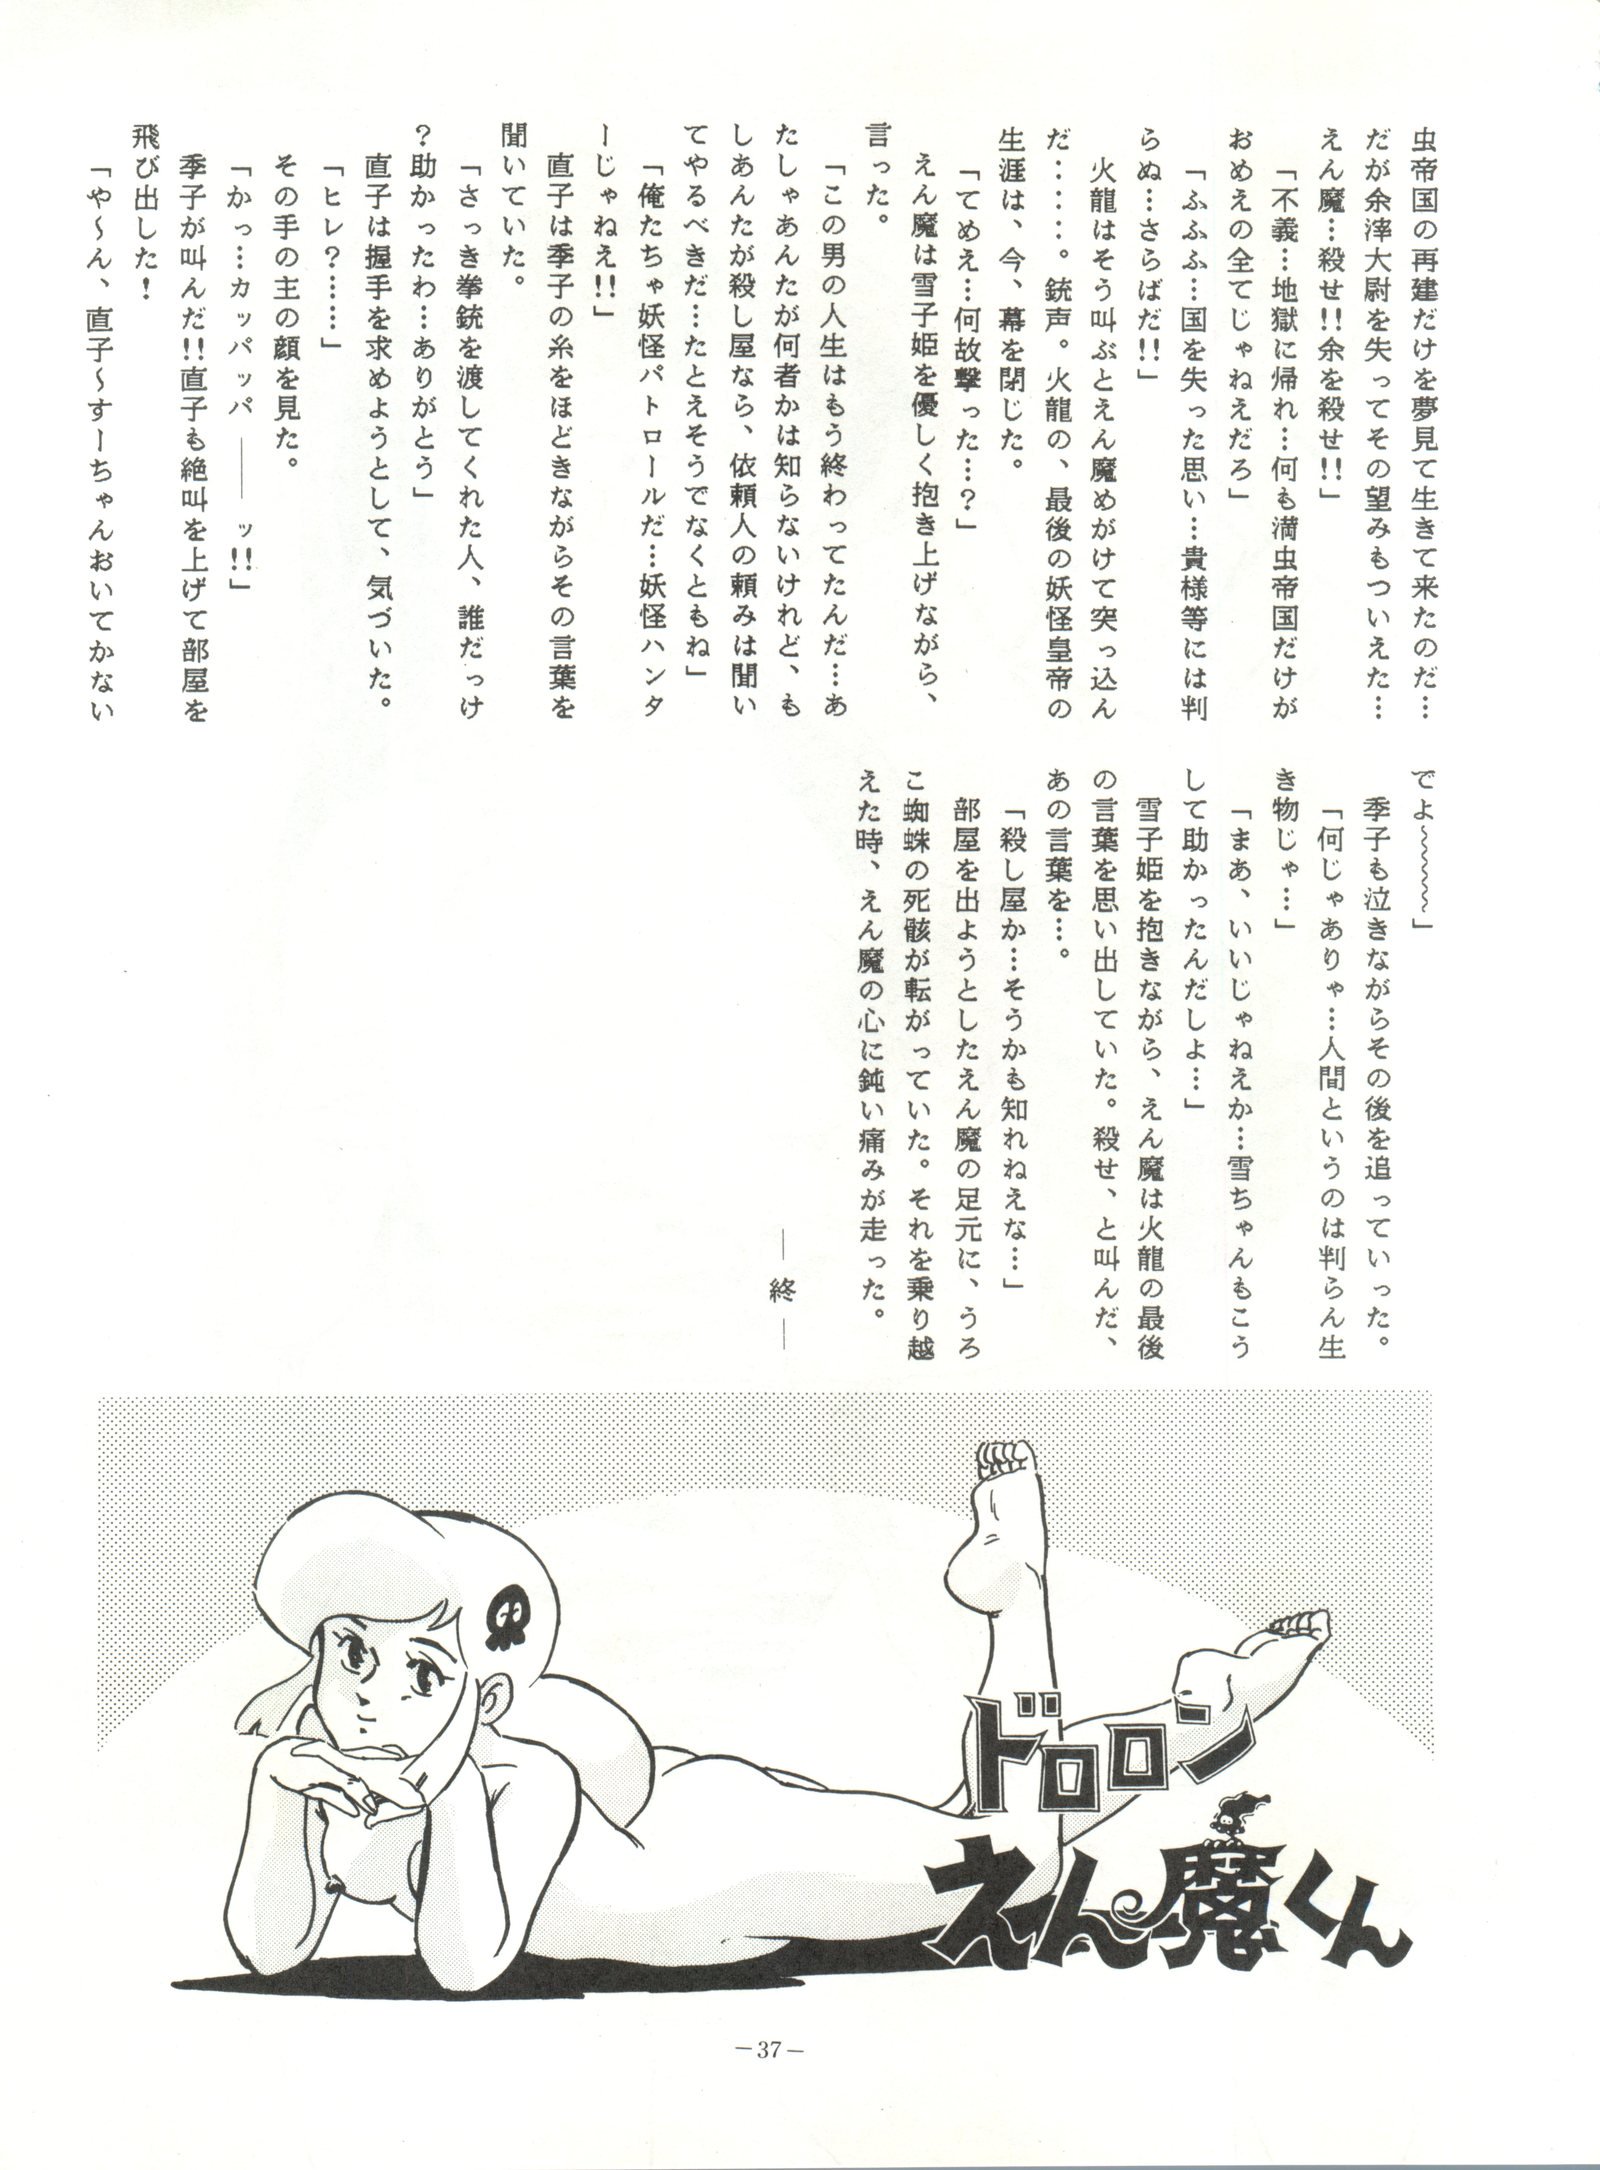 虫帝国の再建だけを夢見て生きて来たのだ…
だが余滓大尉を失ってその望みもついえた…
えん魔…殺せ!!余を殺せ!!」
「不義…地獄に帰れ…何も満虫帝国だけが
おめえの全てじゃねえだろ」
「ふふふ…国を失った思い…貴様等には判
らぬ…さらばだ!!」
火龍はそう叫ぶとえん魔めがけて突っ込ん
だ‥‥‥。銃声。火龍の、最後の妖怪皇帝の
生涯は、今、幕を閉じた。
「てめえ…何故撃った…?」
えん魔は雪子姫を優しく抱き上げながら、
言った。
「この男の人生はもう終わってたんだ…あ
たしゃあんたが何者かは知らないけれど、も
しあんたが殺し屋なら、依頼人の頼みは聞い
てやるべきだ…たとえそうでなくともね」
「俺たちゃ妖怪パトロールだ…妖怪ハンタ
ーじゃねえ!!」
直子は季子の糸をほどきながらその言葉を
聞いていた。
「さっき拳銃を渡してくれた人、誰だっけ
?助かったわ…ありがとう」
直子は握手を求めようとして、気づいた。
「ヒレ?……」
その手の主の顔を見た。
「かっ…カッパッパ――ッ!!」
季子が叫んだ!!直子も絶叫を上げて部屋を
飛び出した!
「や〜ん、直子〜すーちゃんおいてかない
でよ〜〜〜〜」
季子も泣きながらその後を追っていった。
「何じゃありゃ…人間というのは判らん生
き物じゃ…」
「まあ、いいじゃねえか…雪ちゃんもこう
して助かったんだしよ…」
雪子姫を抱きながら、えん魔は火龍の最後
の言葉を思い出していた。殺せ、と叫んだ、
あの言葉を…。
「殺し屋か…そうかも知れねえな…」
部屋を出ようとしたえん魔の足元に、うろ
こ蜘蛛の死骸が転がっていた。それを乗り越
えた時、えん魔の心に鈍い痛みが走った。
―終―
ドロロン
えん魔くん
－37－